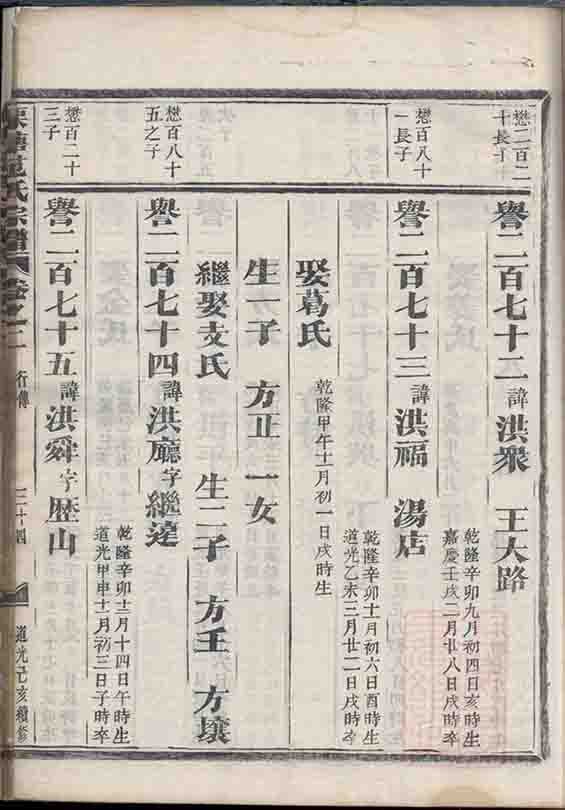 懋二百二
十長子
譽二百七十二諱洪衆 王大路
乾隆辛卯九月初四日亥時生
嘉慶壬戌二月廿八日戌時卒
懋百八十
一長子
譽二百七十三諱洪福 湯店
乾隆辛卯十一月初六日酉時生
道光乙未三月廿二日戌時卒
娶葛氏
乾隆甲午十一月初一日戌時生
生一子 方正 一女
繼娶支氏 生二子 方王 方壤
懋百八十
五之子
譽二百七十四諱洪廳字繼達
乾隆辛卯十二月十四日午時生
道光甲申十一月初三日子時卒
懋百二十
三子
譽二百七十五諱洪舜字歷山
范氏宗譜 卷之二 行傳 二十四 道光己亥續修